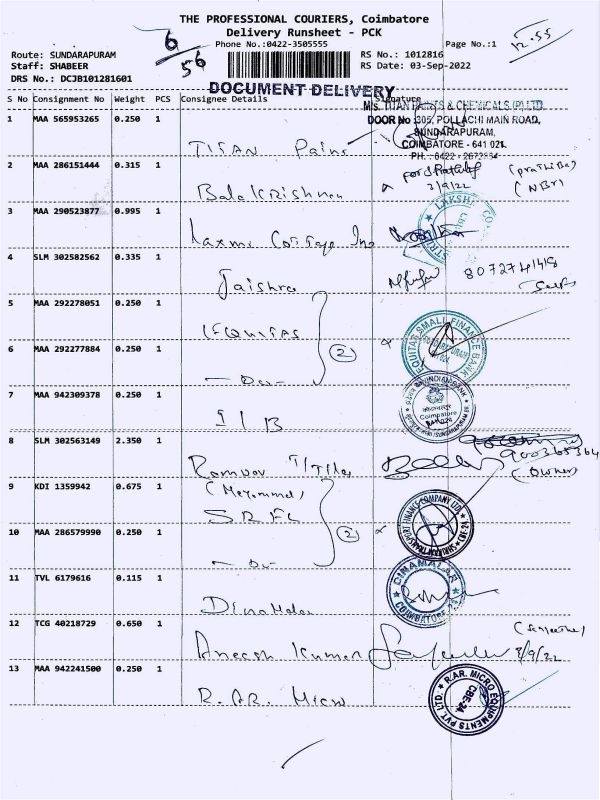 THE PROFESSIONAL COURIERS, Coimbatore
Delivery Runsheet - PCK
Phone No.:0422-3505555
Page No.:1
12.55
6/56
Route: SUNDARAPURAM
Staff: SHABEER
DRS No.: DCJB101281601
RS No.: 1012816
RS Date: 03-Sep-2022
DOCUMENT DELIVERY
S No Consignment No Weight PCS Consignee Details Signature
M/s. TITAN PAINTS & CHEMICALS (P) LTD.
DOOR No :305, POLLACHI MAIN ROAD,
SUNDARAPURAM,
COIMBATORE - 641 021.
PH. : 0422 - 2672864
1 MAA 565953265 0.250 1 TITAN Pains
2 MAA 286151444 0.315 1 Balakrishnan
3/9/22 (NBr)
3 MAA 290523877 0.995 1 Laxmi Cottage Inn
4 SLM 302582562 0.335 1 Jaishra
8072741418
Self
5 MAA 292278051 0.250 1 EQUITAS
EQUITAS SMALL FINANCE BANK
6 MAA 292277884 0.250 1 - Do - (2)
7 MAA 942309378 0.250 1 I/B
INDIAN BANK
Coimbatore
8 SLM 302563149 2.350 1 Ramdev T/Tiles
900365364
(Owner)
9 KDI 1359942 0.675 1 SRFL
10 MAA 286579990 0.250 1 - Do - (2)
11 TVL 6179616 0.115 1 Dinamalar
DINAMALAR
COIMBATORE
12 TCG 40218729 0.650 1 Aneesh Kumar
3/9/22
13 MAA 942241500 0.250 1 R.AR. Micro
R.AR. MICRO EQUIPMENTS PVT. LTD.
CBE-24